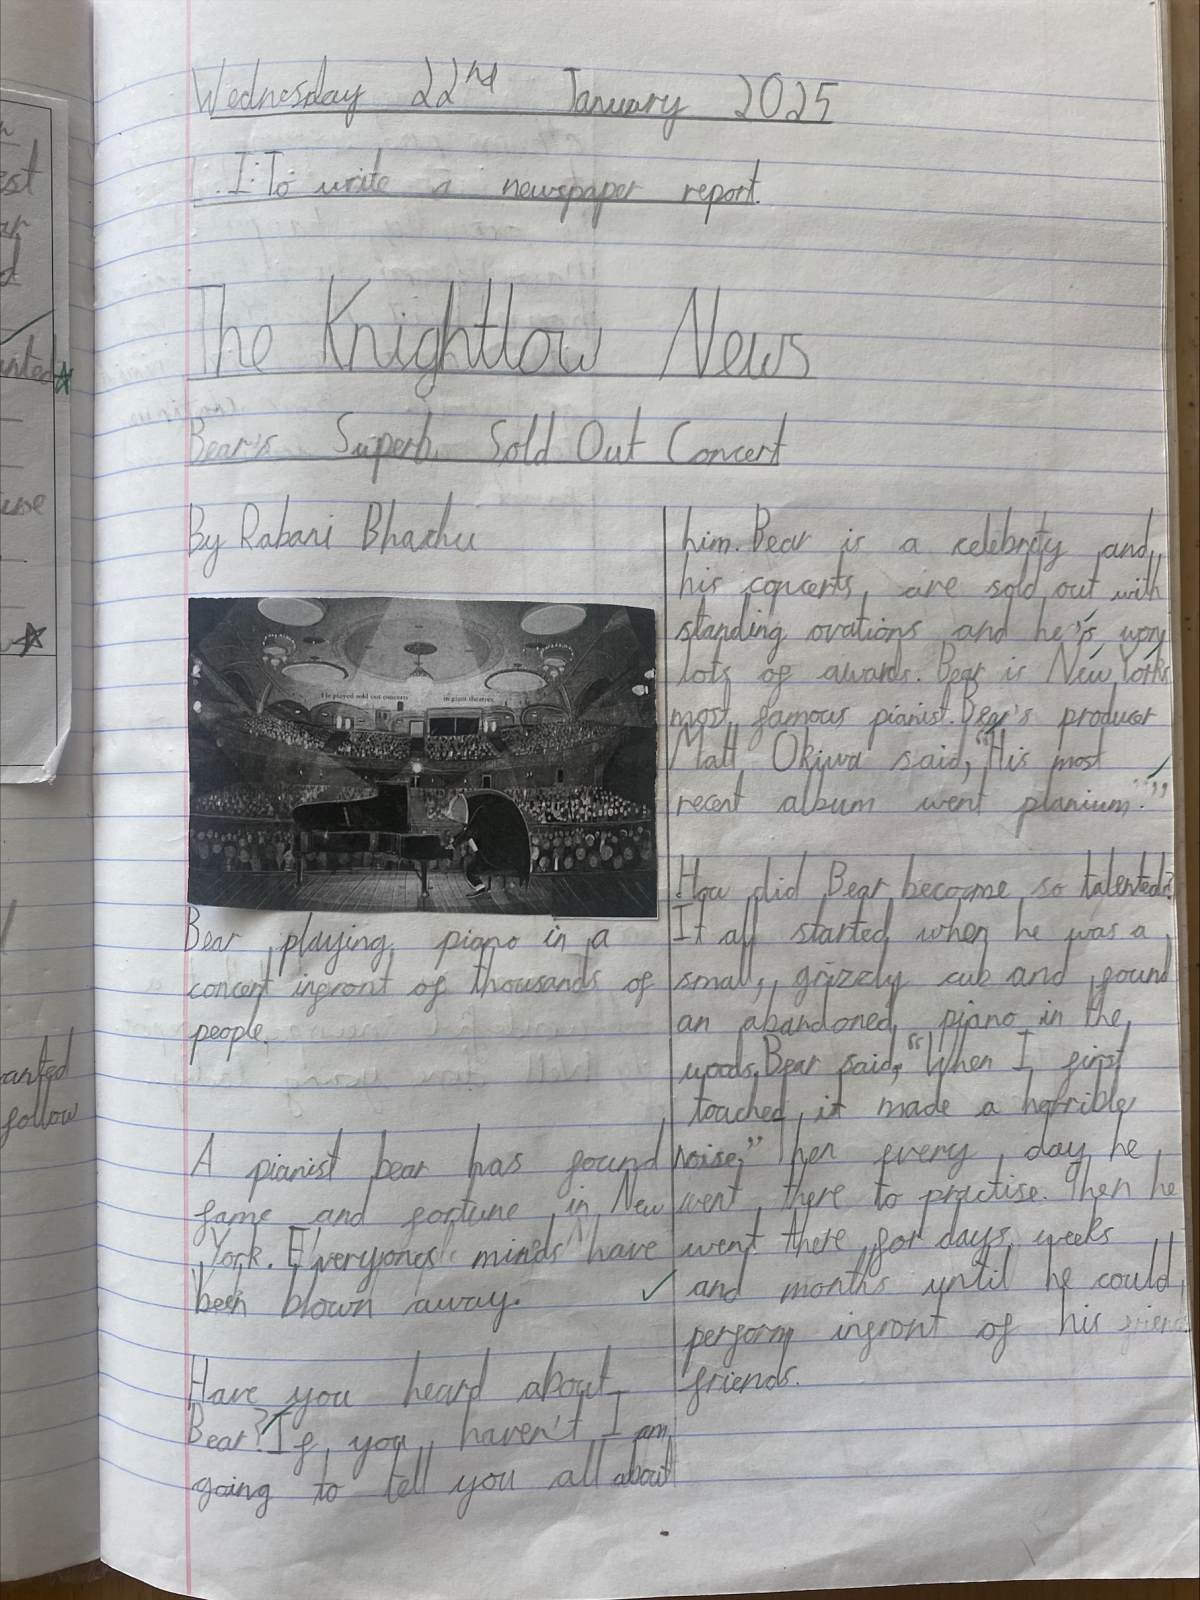 Wednesday 22nd January 2025
L.I: To write a newspaper report.
The Knightlow News
Bear's Superb Sold Out Concert
By Rabani
He played sold out concerts in giant theatres
Bear playing piano in a
concert infront of thousands of
people.
A pianist bear has found
fame and fortune in New
York. Everyones minds have
been blown away.
Have you heard about
Bear? If you haven't I am
going to tell you all about
him. Bear is a celebrity and
his concerts are sold out with
standing ovations and he's won
lots of awards. Bear is New Yorks
most famous pianist. Bear's producer
Matt Okiwa said, "His most
recent album went planium."
How did Bear become so talented?
It all started when he was a
small, grizzly cub and found
an abandoned piano in the
woods. Bear said, "When I first
touched it made a horrible
noise," Then every day he
went there to practise. Then he
went there for days weeks
and months until he could
perform infront of his friend
friends.
anted
follow